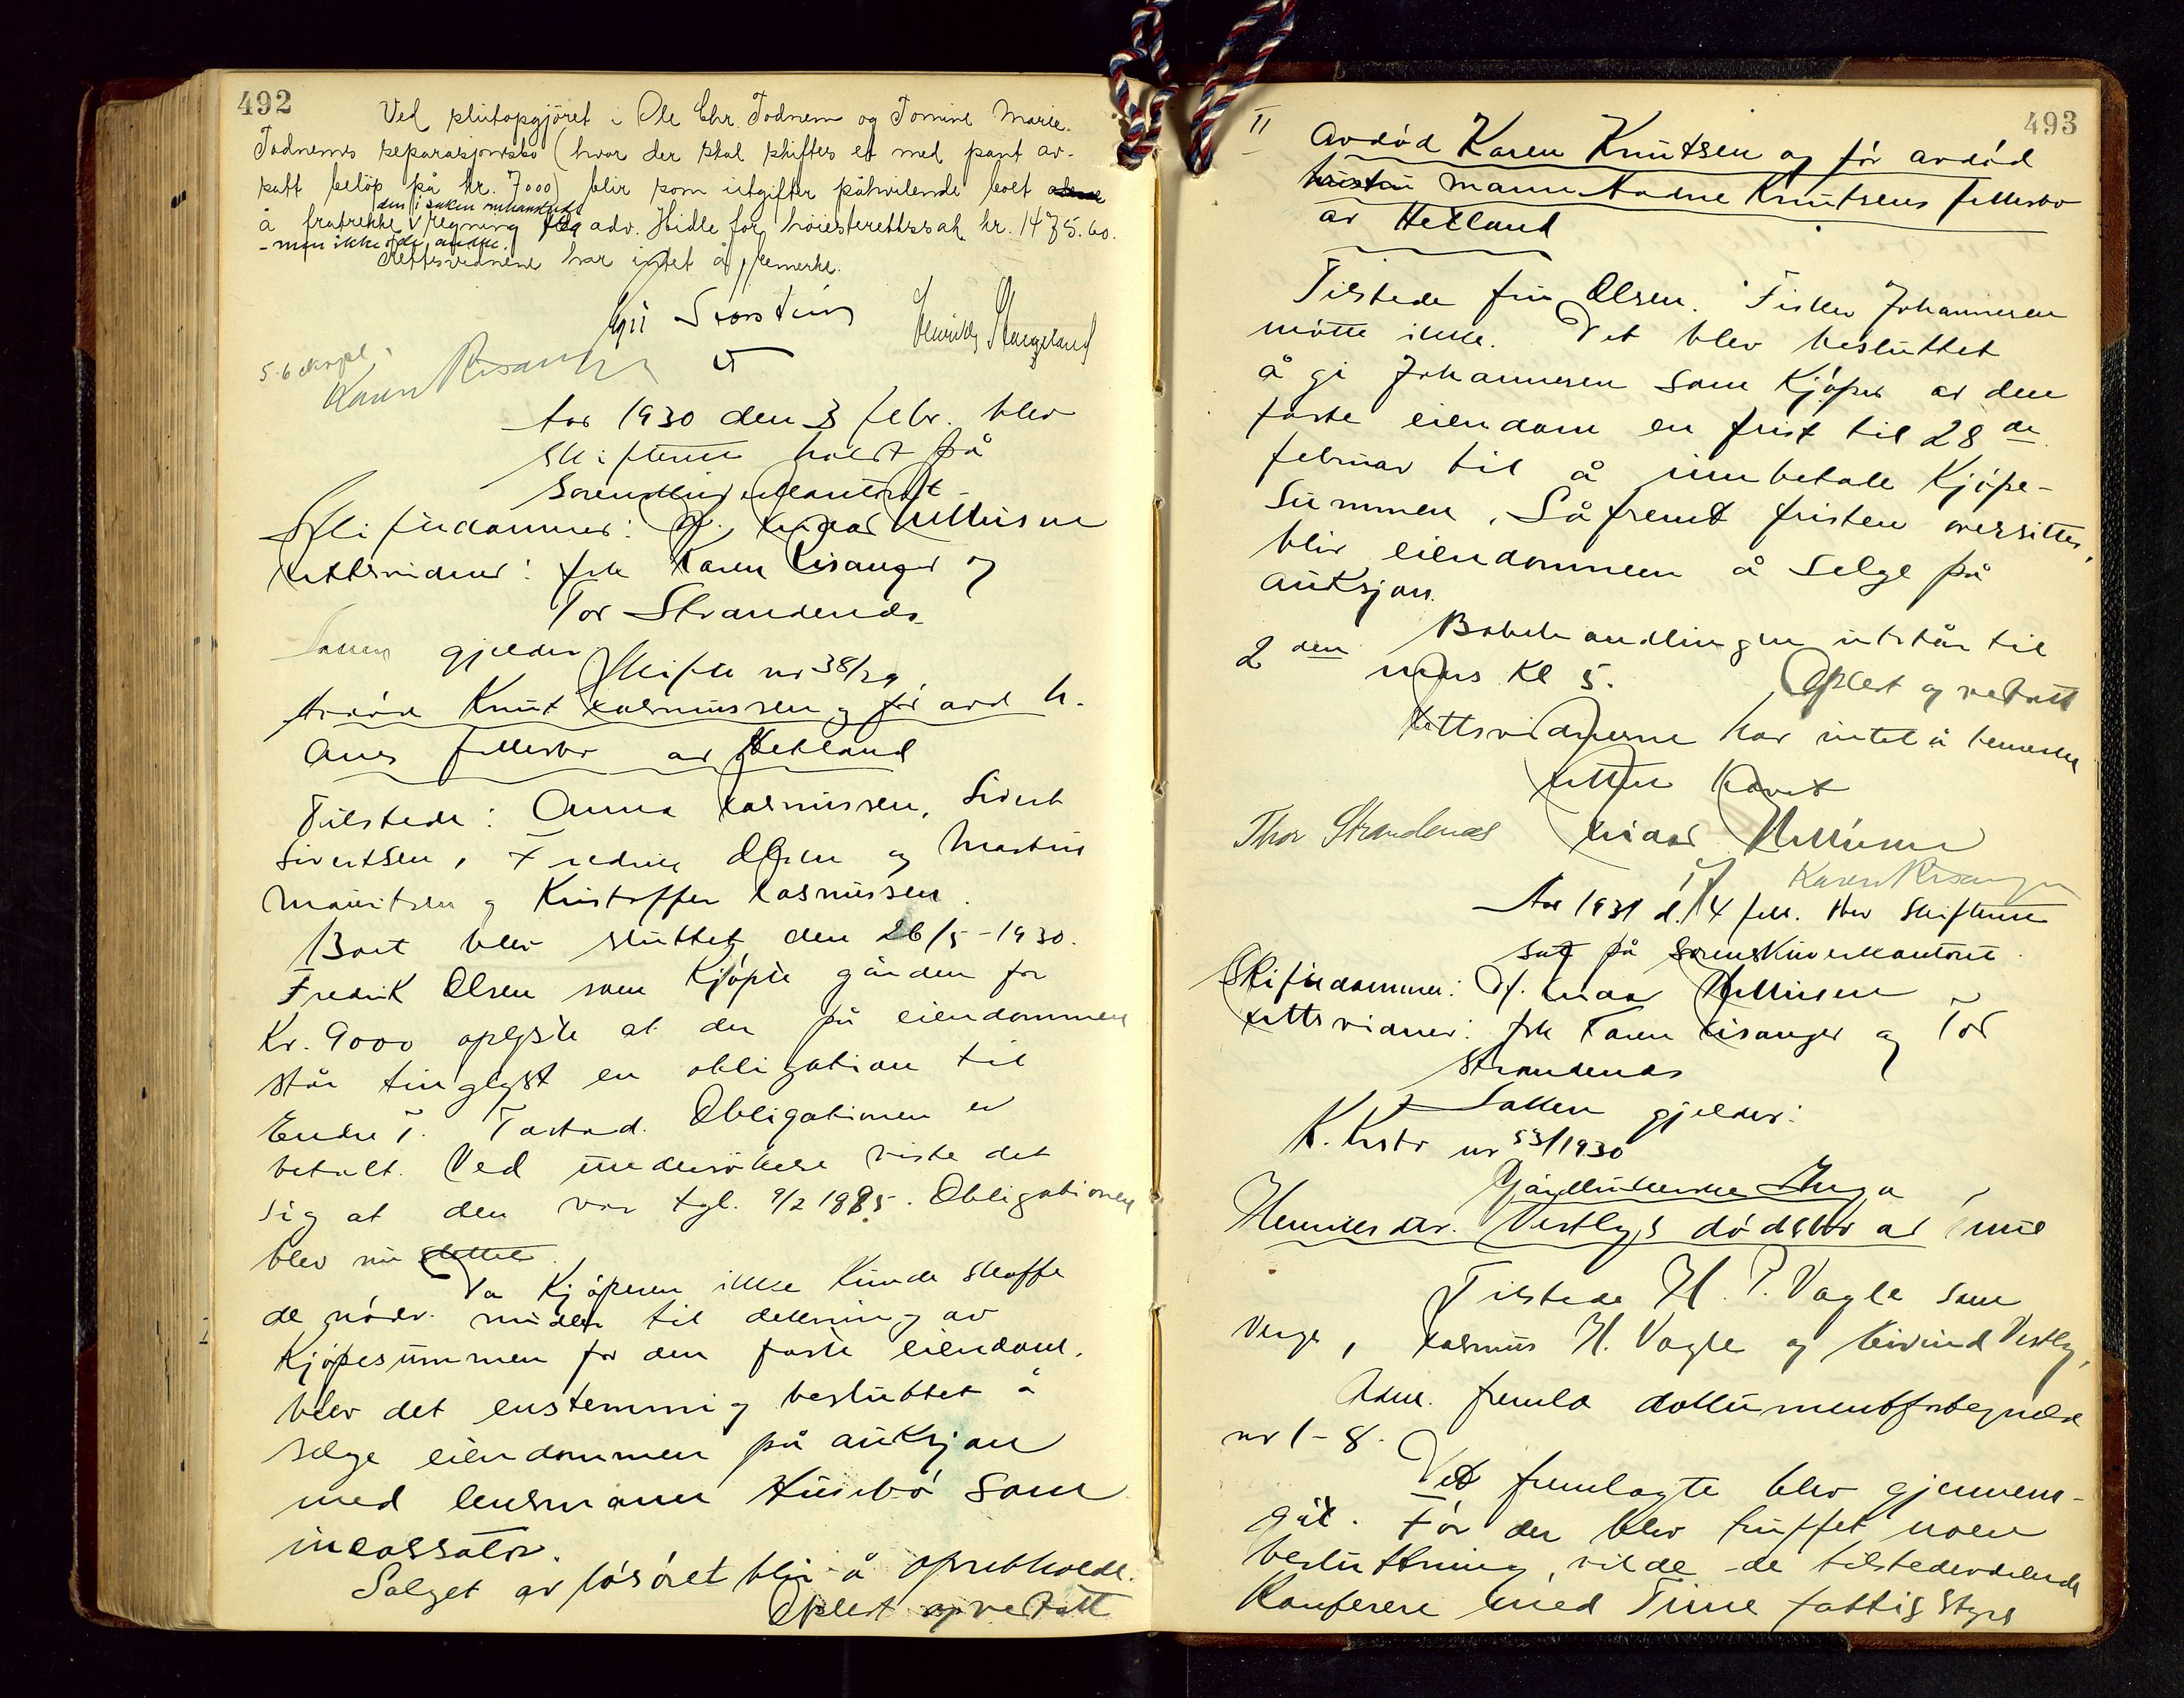 492
Ved sluttopgjöret i Ole Chr. Todnem og Tomine Marie
Todnems separasjonsbo (hvor der skal skiftes et med pant av-
satt beløp på kr. 7000) blir som utgifter påhvilende boet
å fratrekke den i saken omhandlede regning fra adv. Hidle for höiesterettssak kr. 1475.60.
- men ikke de andre.
Rettsvidnene har intet å bemerke.
Karen Risanger
Aar 1930 den 3 febr. blev
skifterett holdt på
Sorenskriverkontoret
Skiftedommer: Einar Mellusen
Rettsvidner: frk Karen Risanger og
Tor Strandenæs
Saken gjelder
Skifte nr 38/29
Avdöd Knut Rasmussen og för avd h.
Anes fellesbo av Hetland
Tilstede: Anna Rasmussen, Sivert
Sivertsen, Fredrik Olsen og Martin
Mauritsen og Kristoffer Rasmussen.
Boet blev sluttet den 26/5-1930.
Fredrik Olsen som kjöpte gården for
Kr. 9000 oplyste at der på eiendommen
står tinglyst en obligation til
Endre T. Tastad. Obligationen er
betalt. Ved undersökelse viste det
sig at den var tgl. 9/2 1885. Obligationen
blev nu slettet.
Da Kjöperen ikke kunde skaffe
de nödv. midler til dekning av
Kjöpesummen for den faste eiendom.
blev det enstemmig besluttet å
selge eiendommen på auksjon
med lensmann Husebö som
incassator.
Salget av lösöret blir å oprettholde.
Oplest og vedtatt
493
II
Avdöd Karen Knutsen og för avdöd
hustru mann Aadne Knutsens fellesbo
av Hetland
Tilstede fru Olsen. Fisker Johannesen
mötte ikke. Det blev besluttet
å gi Johannesen som Kjöper av den
faste eiendom en frist til 28de
februar til å innbetale Kjöpe-
summen. Såfremt fristen oversittes,
blir eiendommen å selge på
auksjon.
Bobehandlingen utstår til
2den mars Kl 5.
Oplest og vedtatt
Rettsvidnerne har intet å bemerke
Retten hevet
Thor Strandenæs
Karen Risanger
Aar 1931 d. 4 febr. blev skifterett
satt på Sorenskriverkontoret.
Skiftedommer: Einar Mellusen
Rettsvidner: frk Karen Risanger og Tor
Strandenæs
Saken gjelder:
nr 53/1930
Gårdbrukerske Inga
Henriksdtr. Vestlys dödsbo av Time
Tilstede H. P. Vagle som
Verge, Rasmus H. Vagle og Eivind Vestly,
Adm. fremla dokumentfortegnelse
nr 1-8.
Det fremlagte blev gjennem-
gåt. För der blev truffet noen
beslutning, vilde de tilstedeværende
Konferere med Time fattigstyre